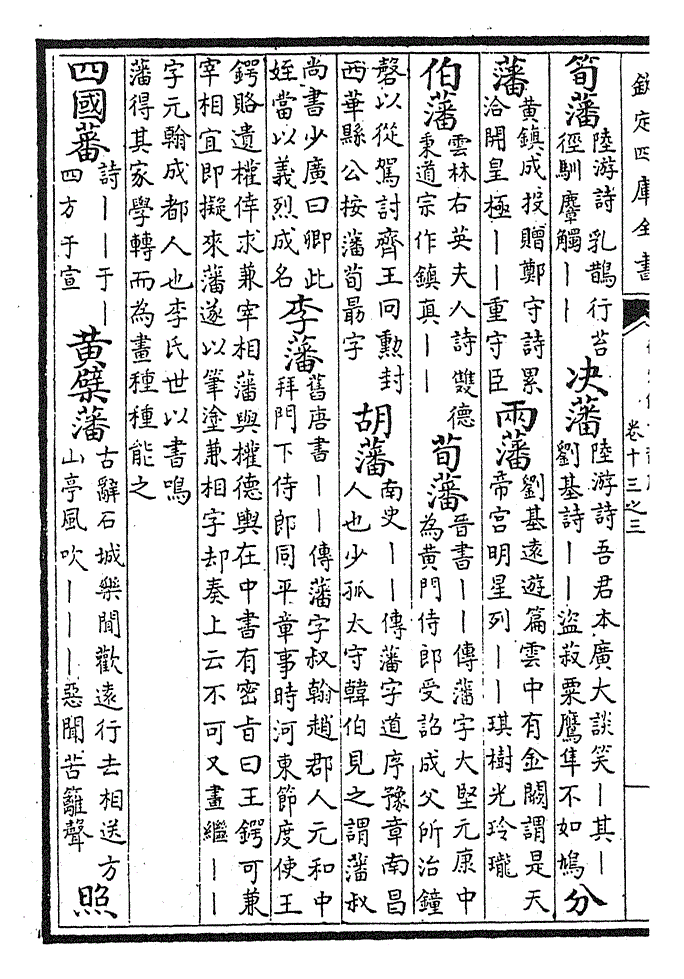 欽定四庫全書
卷十三之三
筍藩 陸游詩乳鵲行苔徑馴麞觸丨丨 决藩 陸游詩吾君本廣大談笑丨其丨劉基詩丨丨盜菽粟鷹隼不如鳩 分
藩 黄鎮成投贈鄭守詩累洽開皇極丨丨重守臣 兩藩 劉基遠遊篇雲中有金闕謂是天帝宫明星列丨丨琪樹光玲瓏
伯藩 雲林右英夫人詩雙德秉道宗作鎮真丨丨 荀藩 晉書丨丨傳藩字大堅元康中為黄門侍郎受詔成父所治鐘
磬以從駕討齊王冏勲封西華縣公按藩荀勗字 胡藩 南史丨丨傳藩字道序豫章南昌人也少孤太守韓伯見之謂藩叔
尚書少廣曰卿此姪當以義烈成名 李藩 舊唐書丨丨傳藩字叔翰趙郡人元和中拜門下侍郎同平章事時河東節度使王
鍔賂遺權倖求兼宰相藩與權德輿在中書有密旨曰王鍔可兼宰相宜即擬來藩遂以筆塗兼相字却奏上云不可又畫繼丨丨
字元翰成都人也李氏世以書鳴藩得其家學轉而為畫種種能之
四國蕃 詩丨丨于丨四方于宣 黄檗藩 古辭石城樂聞歡遠行去相送方山亭風吹丨丨丨惡聞苦籬聲 照